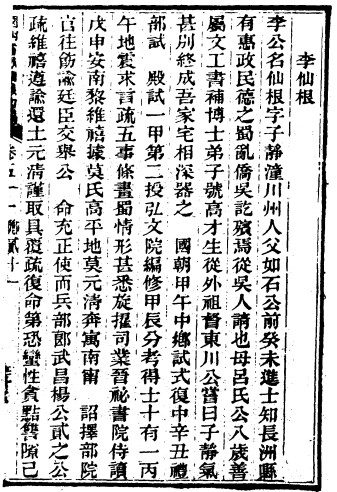 李仙根
李公名仙根字子靜潼川州人父如石公前癸未進士知長洲縣
有惠政民德之蜀亂僑吳訖殯焉從吳人請也母呂氏公八歲善
屬文工書補博士弟子號高才生從外祖督東川公嘗曰子靜氣
甚別終成吾家宅相深器之 國朝甲午中鄉試式復中辛丑禮
部試 殿試一甲第二投弘文院編修甲辰分考得士十有一丙
午地震求言疏五事條畫蜀情形甚悉旋擢司業晉祕書院侍讀
戊申安南黎維禧據莫氏高平地莫元清奔寓南甯 詔擇部院
官往飭諭廷臣交舉公 命充正使而兵部郎武昌楊公貳之公
疏維禧遵諭還土元清謹取具覆疏復命第恐蠻性貪黠雙隙已